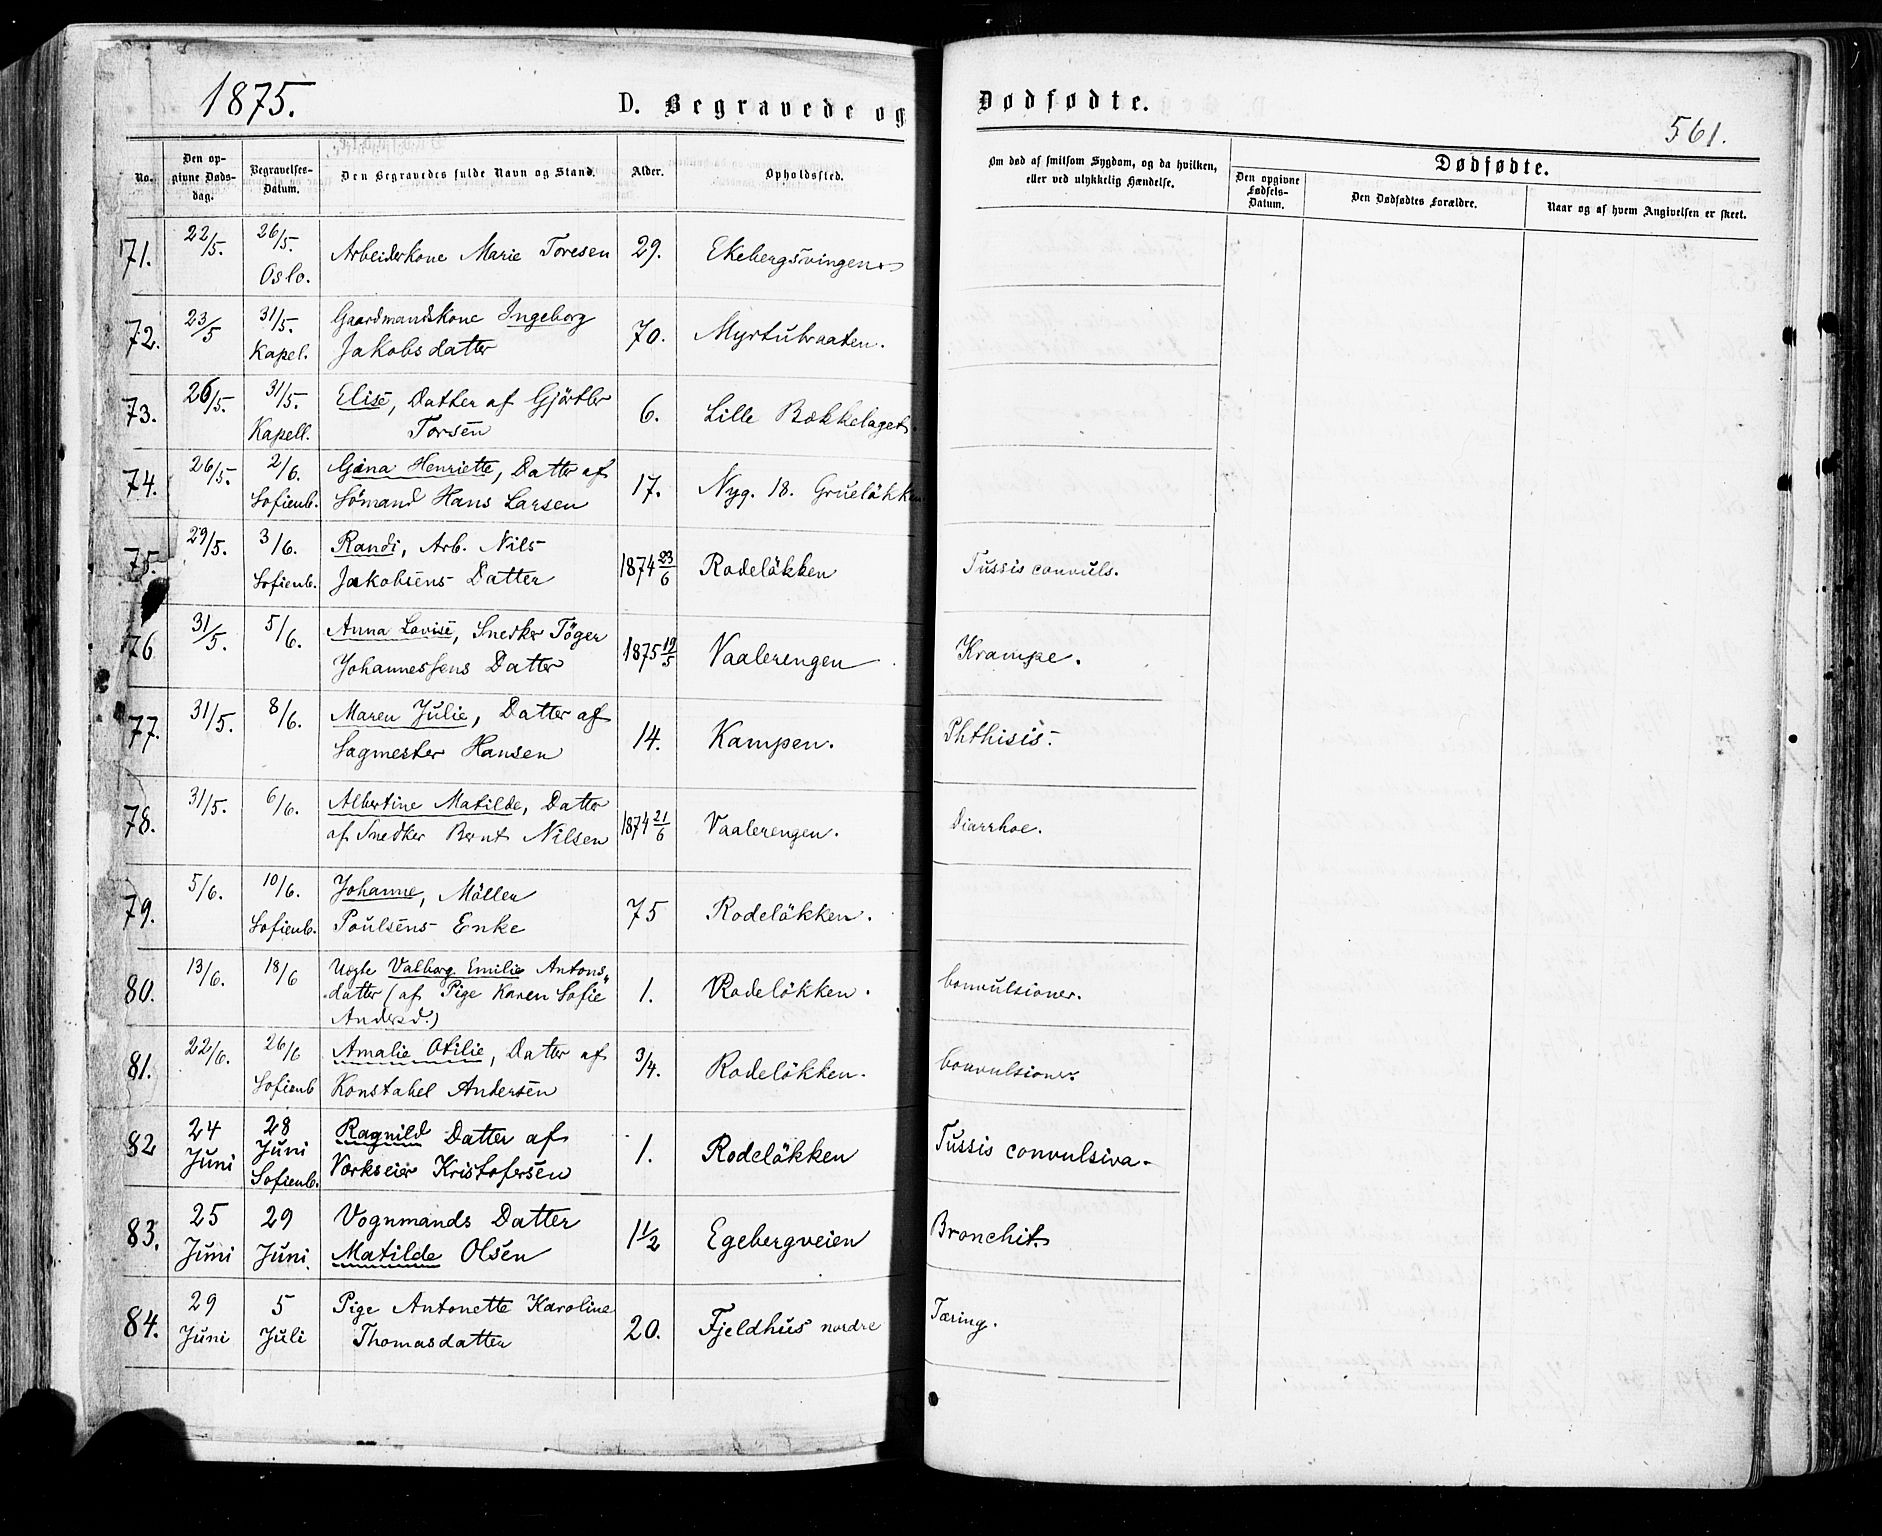 1875.
D. Begravede og Dødfødte.
561.
No.
Den opgivne Dødsdag.
Begravelses-Datum.
Den Begravedes fulde Navn og Stand.
Alder.
Opholdssted.
Om død af smitsom Sygdom, og da hvilken, eller ved ulykkelig Hændelse.
Dødfødte.
Den opgivne Fødsels-Datum.
Den Dødfødtes Forældre.
Naar og af hvem Angivelsen er skeet.
71. 22/5. 26/5. Oslo. Arbeiderkone Marie Toresen 29. Ekebergsvingen
72. 23/5 31/5. Kapel. Gaardmandskone Ingeborg Jakobsdatter 70. Myrtubraaten.
73. 26/5. 31/5. Kapell. Elise, Datter af Gjörtler Torsen 6. Lille Bækkelaget.
74. 26/5. 2/6. Sofienb. Gina Henriette, Datter af Sömand Hans Larsen 17. Nyg. 18. Grueløkken
75. 29/5. 3/6. Sofienb. Randi, Arb. Nils Jakobsens Datter 1874 23/6 Rodeløkken Tussis convuls.
76 31/5. 5/6. Anna Lovise, Snedker Töger Johannessens Datter 1875 19/5 Vaalerengen Krampe.
77. 31/5. 8/6. Maren Julie, Datter af Sagmester Hansen 14. Kampen. Phthisis.
78. 31/5. 6/6. Albertine Matilde, Datter af Snedker Bernt Nilsen 1874 21/6 Vaalerengen. Diarrhoe.
79. 5/6. 10/6. Sofienb. Johanne, Möller Poulsens Enke 75 Rodeløkken.
80. 13/6. 18/6 Uegte Valborg Emilie Antons„ datter (af Pige Karen Sofie Andersd.) 1. Rodeløkken. Convulsioner.
81. 22/6. 26/6 Sofienb Amalie Otilie, Datter af Konstabel Andersen 3/4. Rodeløkken. Convulsioner.
82 24 Juni 28 Juni Sofienb. Ragnild Datter af Værkseier Kristofersen 1. Rodeløkken Tussis convulsiva.
83. 25 Juni 29 Juni. Vognmands Datter Matilde Olsen 1 1/2 Egebergveien Bronchit.
84. 29 Juni 5 Juli Pige Antonette Karoline Thomasdatter 20. Fjeldhus nordre Tæring.